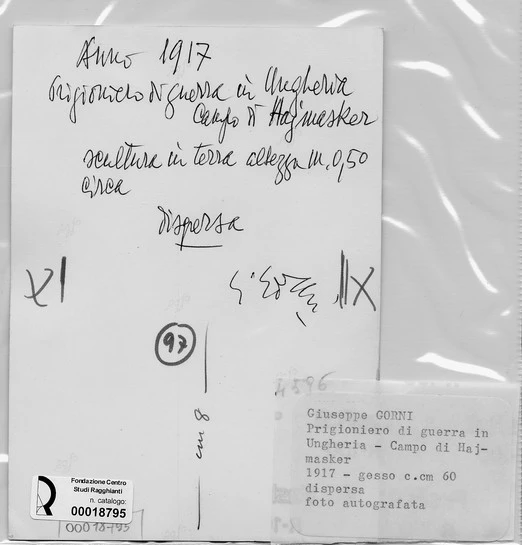 Anno 1917
Prigioniero di guerra in Ungheria
Campo di Hajmasker
scultura in terra altezza m. 0,50
circa
dispersa
XI
IIX
97
cm 8
4596
Giuseppe GORNI
Prigioniero di guerra in
Ungheria - Campo di Haj-
masker
1917 - gesso c.cm 60
dispersa
foto autografata
Fondazione Centro
Studi Ragghianti
n. catalogo:
00018795